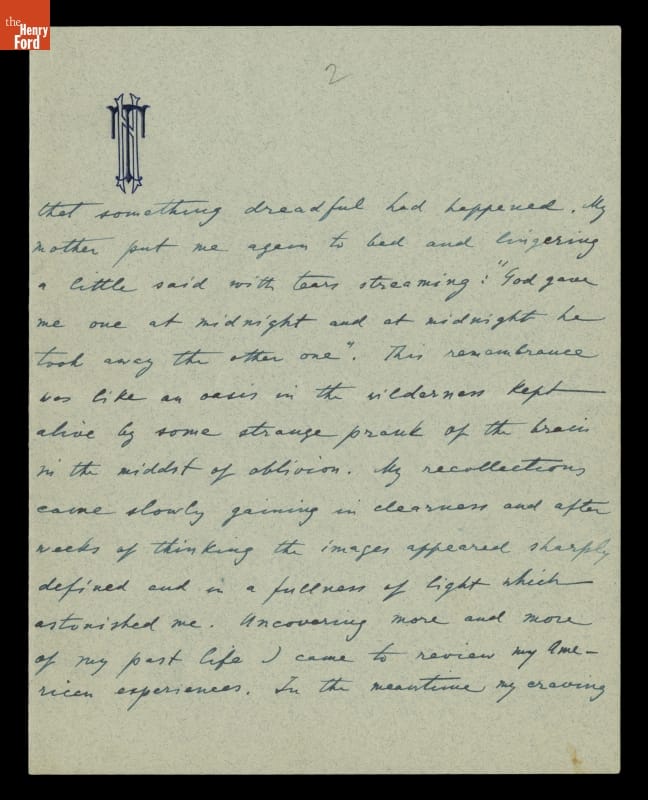 the
Henry
Ford
2
NT
that something dreadful had happened. My
mother put me again to bed and lingering
a little said with tears streaming: "God gave
me one at midnight and at midnight he
took away the other one". This remembrance
was like an oasis in the wilderness kept
alive by some strange prank of the brain
in the middst of oblivion. My recollections
came slowly gaining in clearness and after
weeks of thinking the images appeared sharply
defined and in a fullness of light which
astonished me. Uncovering more and more
of my past life I came to review my Ame-
rican experiences. In the meantime my craving